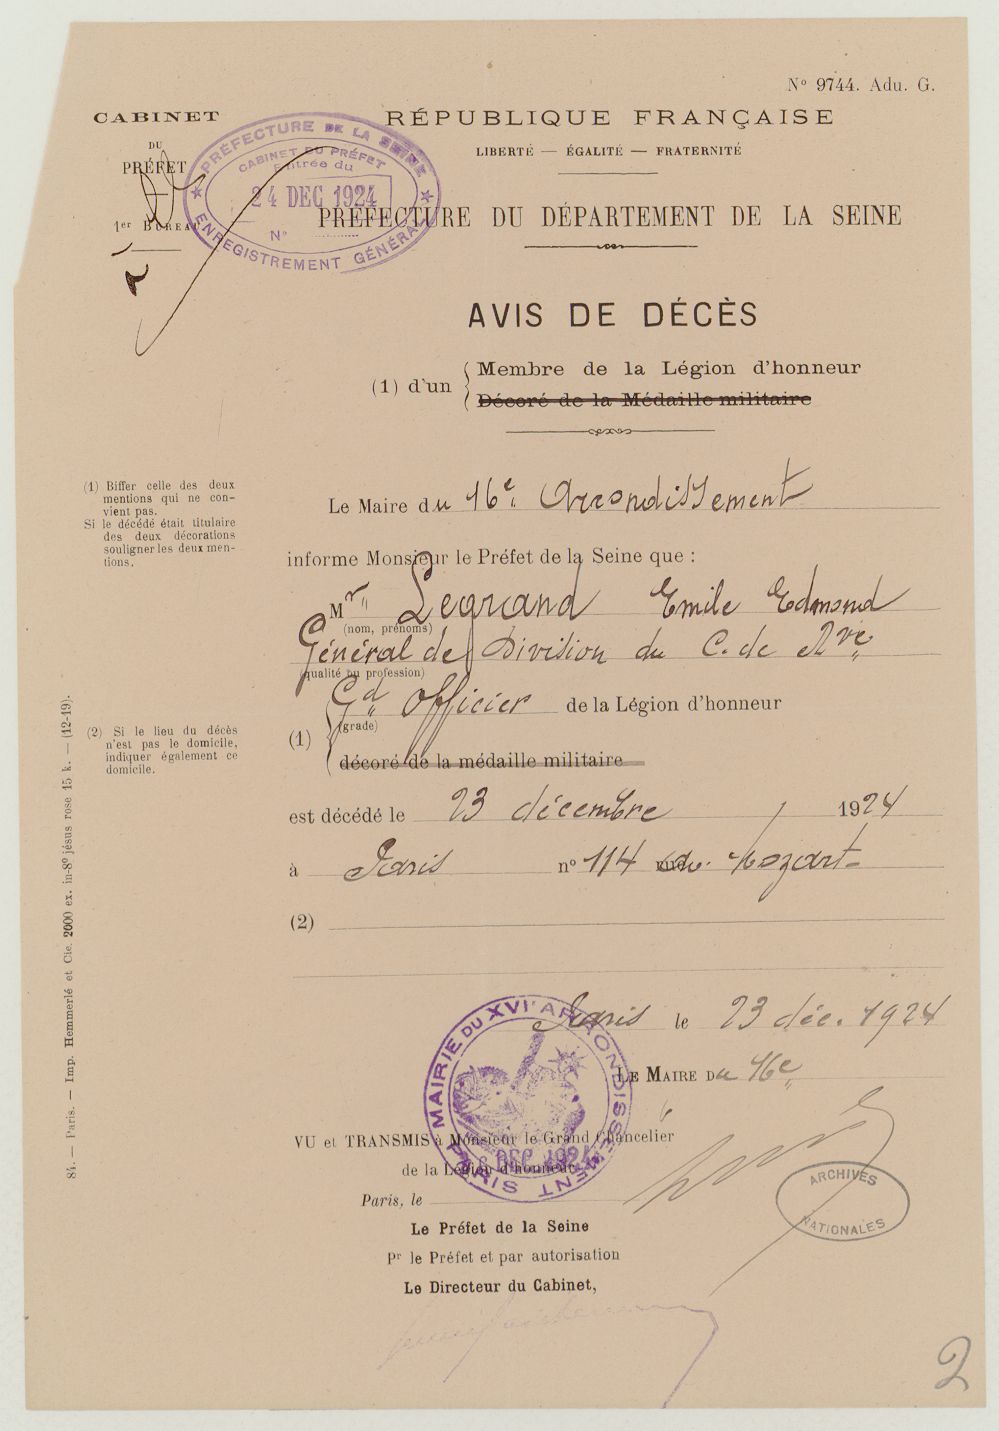 Nº 9744. Adu. G.
CABINET
DU
PRÉFET
1er BUREAU
RÉPUBLIQUE FRANÇAISE
LIBERTÉ — ÉGALITÉ — FRATERNITÉ
PRÉFECTURE DU DÉPARTEMENT DE LA SEINE
PRÉFECTURE DE LA SEINE
CABINET DU PRÉFET
Entrée du
24 DEC 1924
Nº
ENREGISTREMENT GÉNÉRAL
AVIS DE DÉCÈS
(1) d'un
Membre de la Légion d'honneur
Décoré de la Médaille militaire
(1) Biffer celle des deux
mentions qui ne con-
vient pas.
Si le décédé était titulaire
des deux décorations
souligner les deux men-
tions.
Le Maire du 16e Arrondissement
informe Monsieur le Préfet de la Seine que :
Mr Legrand Emile Edmond
(nom, prénoms)
Général de Division du C. de Rve
(qualité ou profession)
Gd Officier de la Légion d'honneur
(grade)
(1)
décoré de la médaille militaire
(2) Si le lieu du décès
n'est pas le domicile,
indiquer également ce
domicile.
est décédé le 23 décembre 1924
à Paris nº 114 Mozart
(2)
Paris le 23 déc. 1924
LE MAIRE DU 16e
MAIRIE DU XVIe ARRONDISSEMENT
PARIS
VU et TRANSMIS à Monsieur le Grand Chancelier
de la Légion d'honneur
Paris, le
Le Préfet de la Seine
Pr le Préfet et par autorisation
Le Directeur du Cabinet,
ARCHIVES
NATIONALES
84. — Paris. — Imp. Hemmerlé et Cie. 2000 ex. in-8º jésus rose 15 k. — (12-19).
2